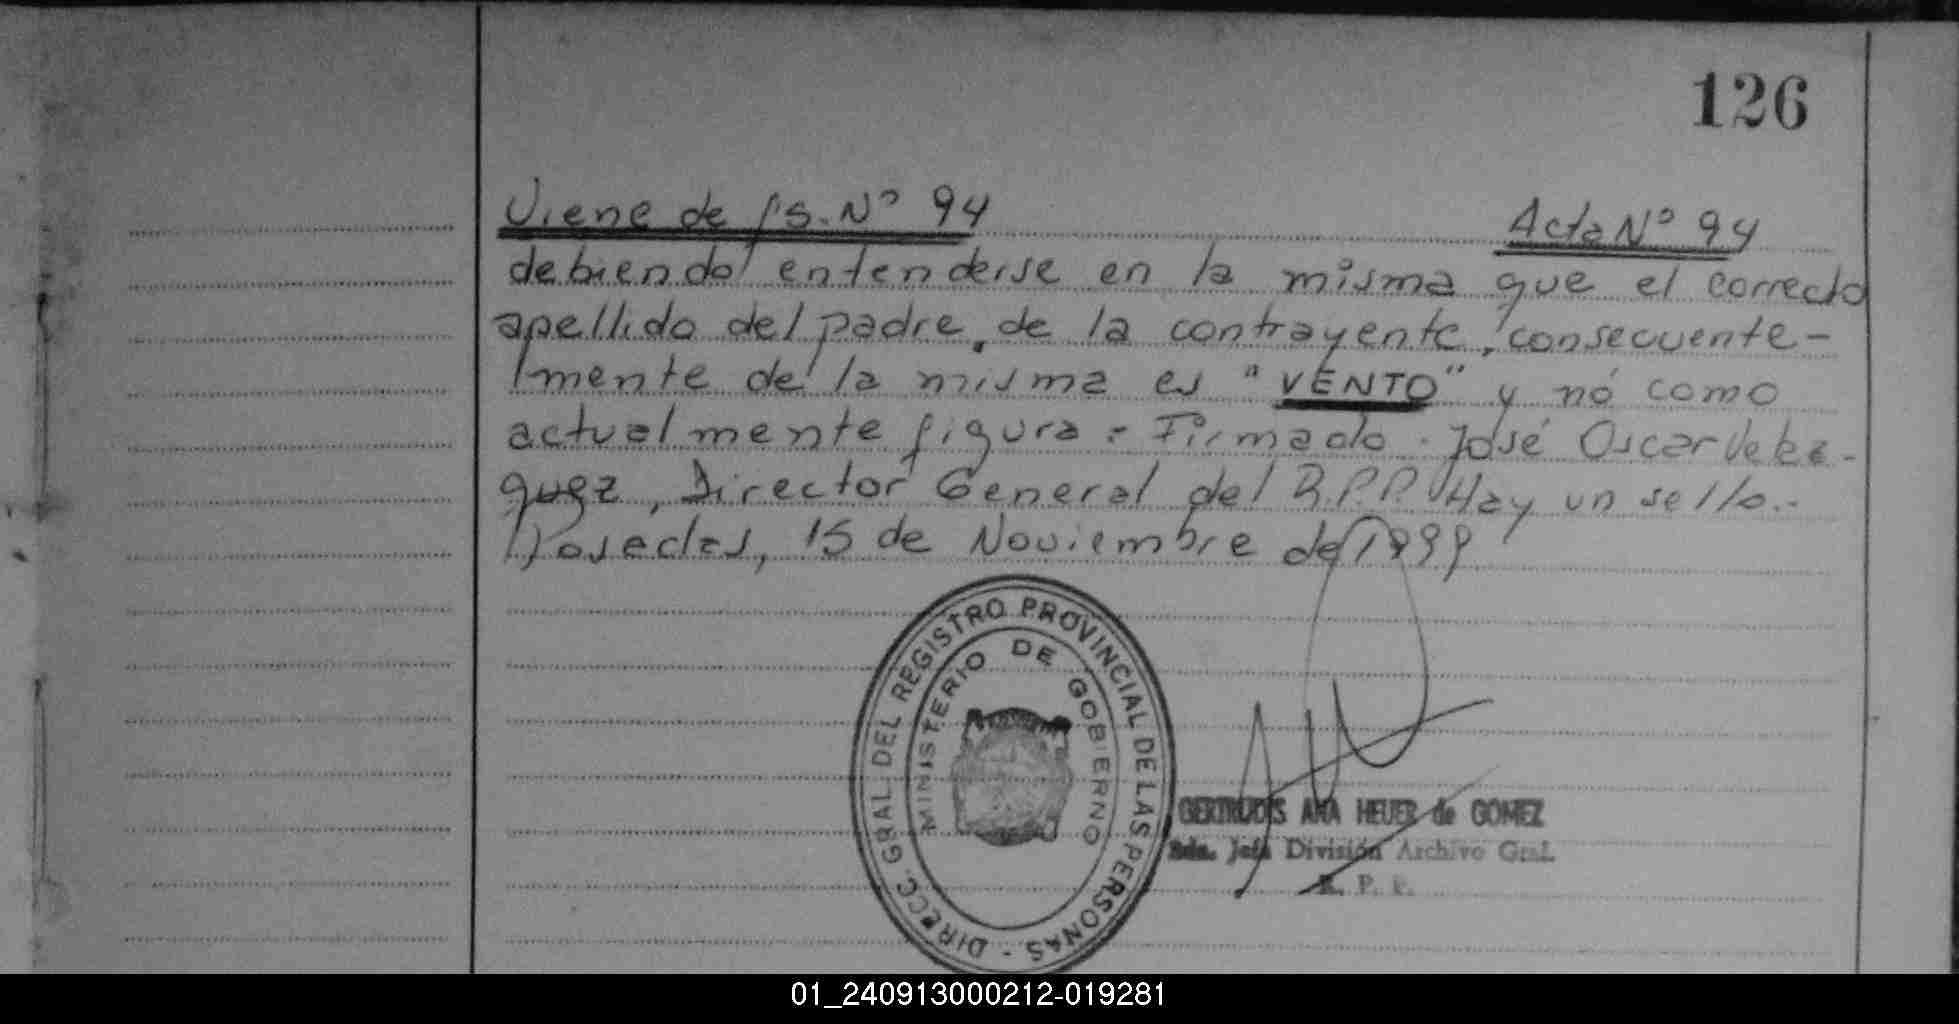 126
Viene de fs. Nº 94 Acta Nº 94
debiendo entenderse en la misma que el correcto
apellido del padre, de la contrayente, consecuente-
mente de la misma es "VENTO" y nó como
actualmente figura = Firmado. José Oscar Velaz-
quez, Director General del R.P.P. Hay un sello.-
Posadas, 15 de Noviembre de 1999
DIRECC. GRAL. DEL REGISTRO PROVINCIAL DE LAS PERSONAS -
MINISTERIO DE GOBIERNO
GERTRUDIS ANA HEUER de GOMEZ
Sda. Jefa División Archivo Gral.
R. P. P.
01_240913000212-019281